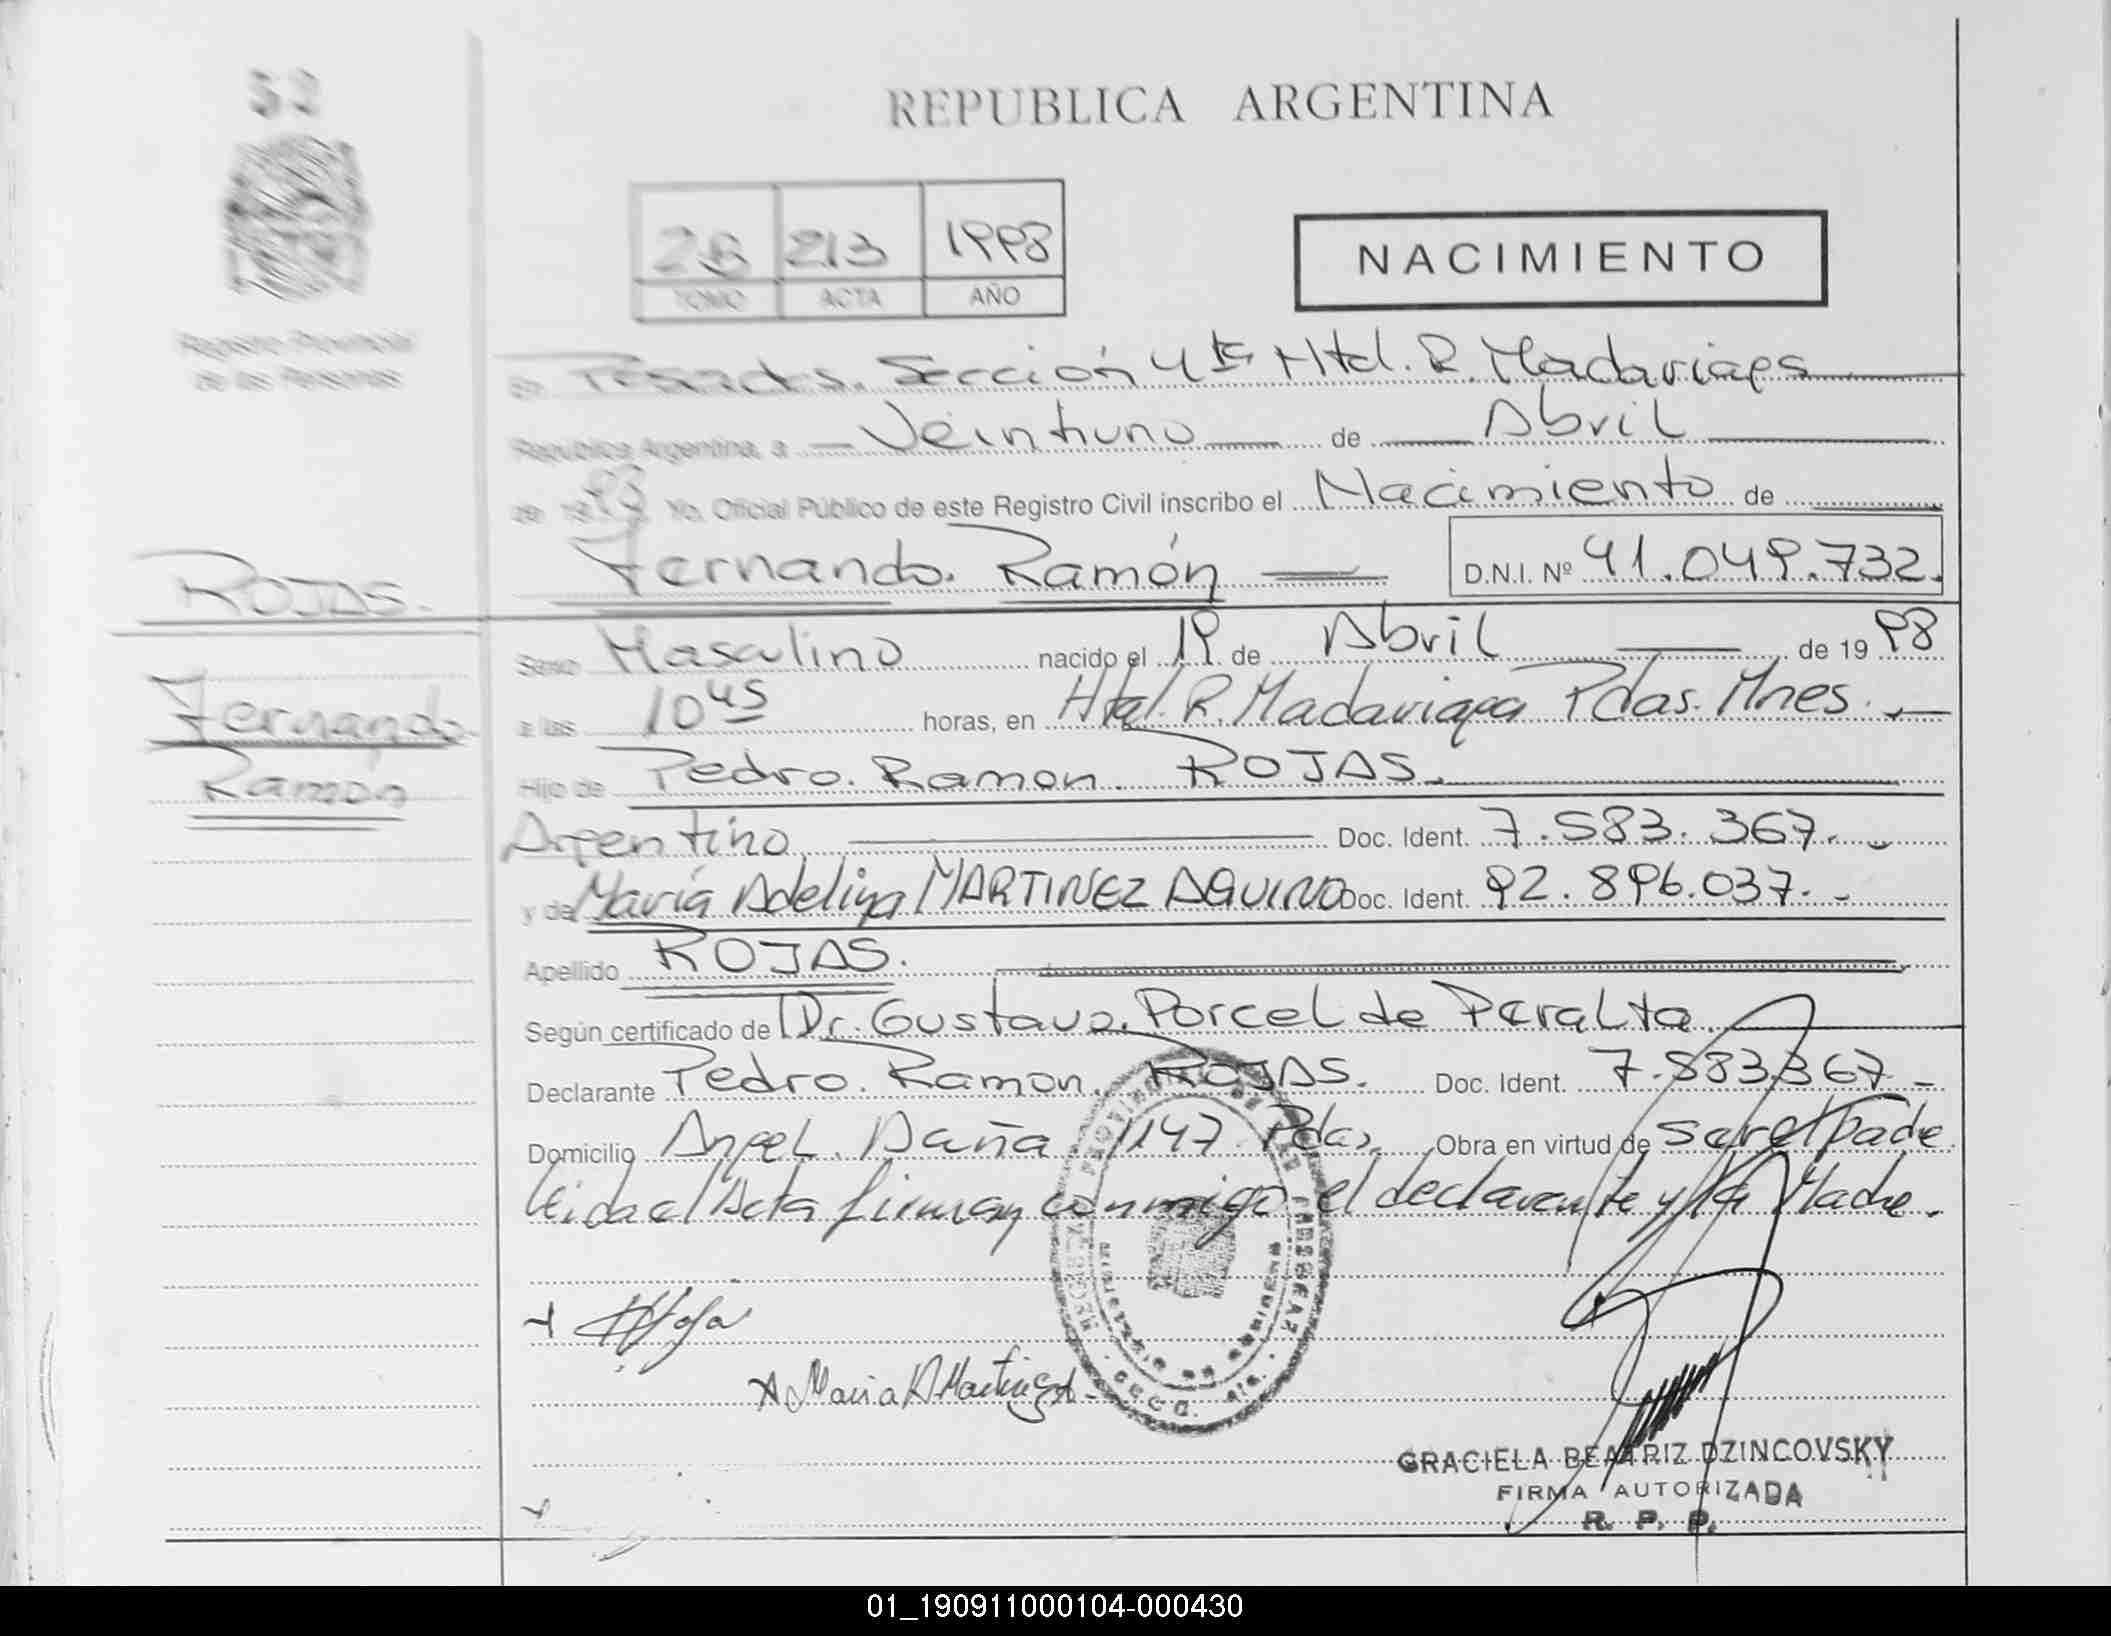 52
REPUBLICA ARGENTINA
26 213 1998
TOMO ACTA AÑO
NACIMIENTO
Registro Provincial
de las Personas
En Posadas. Sección 4ta Htal. R. Madariaga
República Argentina, a Veintiuno de Abril
de 1998 Yo, Oficial Público de este Registro Civil inscribo el Nacimiento de
Fernando. Ramón D.N.I. Nº 41.049.732.
ROJAS.
Fernando.
Ramón
Sexo Masculino nacido el 19 de Abril de 1998
a las 10 45 horas, en Htal. R. Madariaga Pdas. Mnes.
Hijo de Pedro. Ramon. ROJAS.
Argentino Doc. Ident. 7.583.367.
y de María Adelina MARTINEZ AQUINO Doc. Ident. 92.896.037.
Apellido ROJAS.
Según certificado de Dr. Gustavo. Porcel de Peralta
Declarante Pedro. Ramon. ROJAS. Doc. Ident. 7.583.367
Domicilio Angel. Acuña 1147 Pdas. Obra en virtud de ser el Padre.
Leida el Acta firman conmigo el declarante y la Madre.
Maria A Martinez A
GRACIELA BEATRIZ DZINCOVSKY
FIRMA AUTORIZADA
R. P. P.
01_190911000104-000430